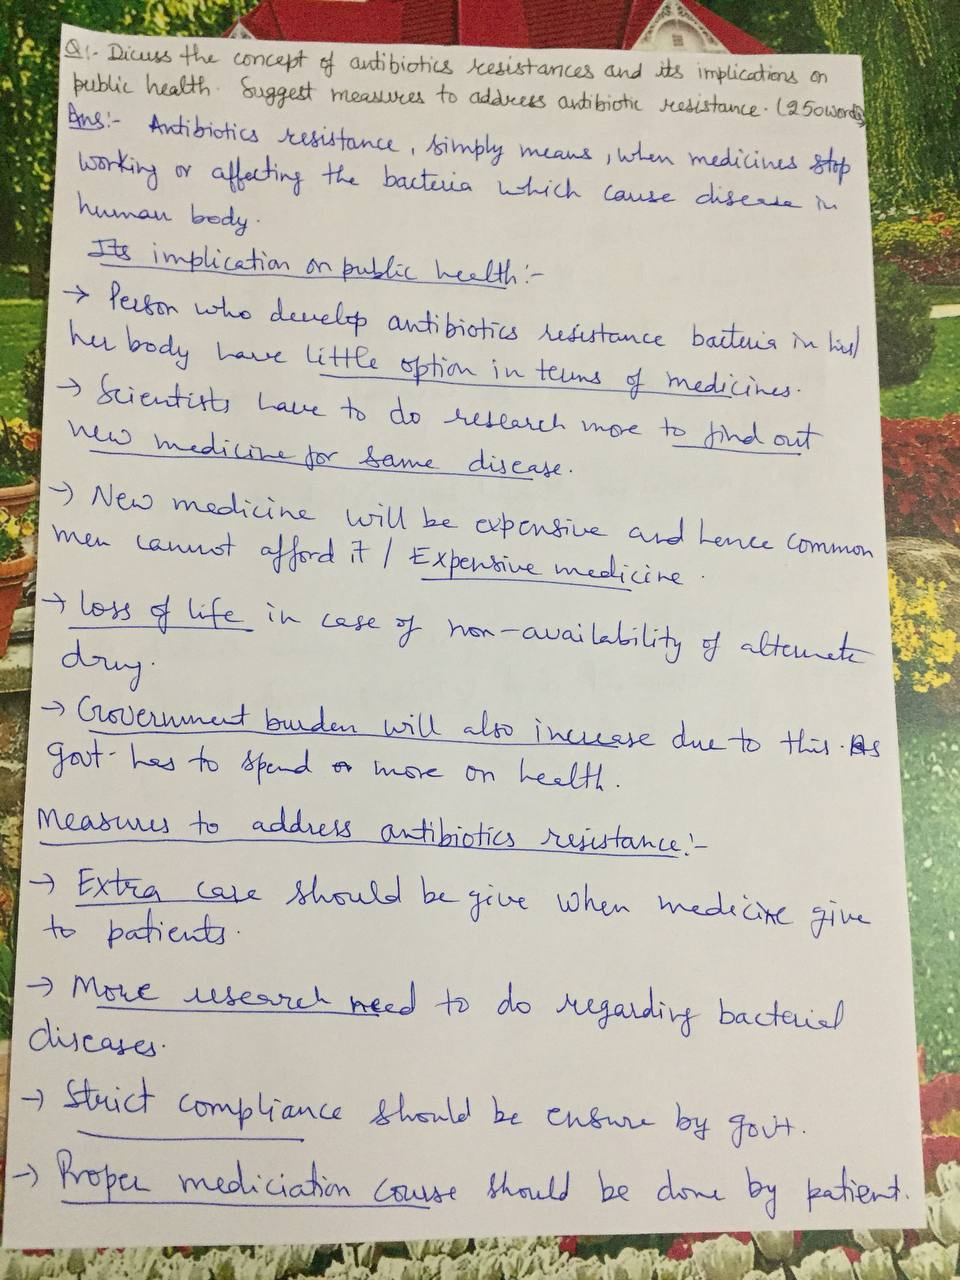 Q:- Dicuss the concept of antibiotics resistances and its implications on
public health. Suggest measures to address antibiotic resistance. (250words)
Ans:- Antibiotics resistance, simply means, when medicines stop
working or affecting the bacteria which cause disease in
human body.
Its implication on public health:-
→ Person who develop antibiotics resistance bacteria in his/
her body have little option in terms of medicines.
→ Scientists have to do research more to find out
new medicine for same disease.
→ New medicine will be expensive and hence common
men cannot afford it / Expensive medicine.
→ Loss of life in case of non-availability of alternate
drug.
→ Government burden will also increase due to this. As
govt. has to spend more on health.
Measures to address antibiotics resistance:-
→ Extra case should be give when medicine give
to patients.
→ More research need to do regarding bacterial
diseases.
→ Strict compliance should be ensure by govt.
→ Proper mediciation course should be done by patient.